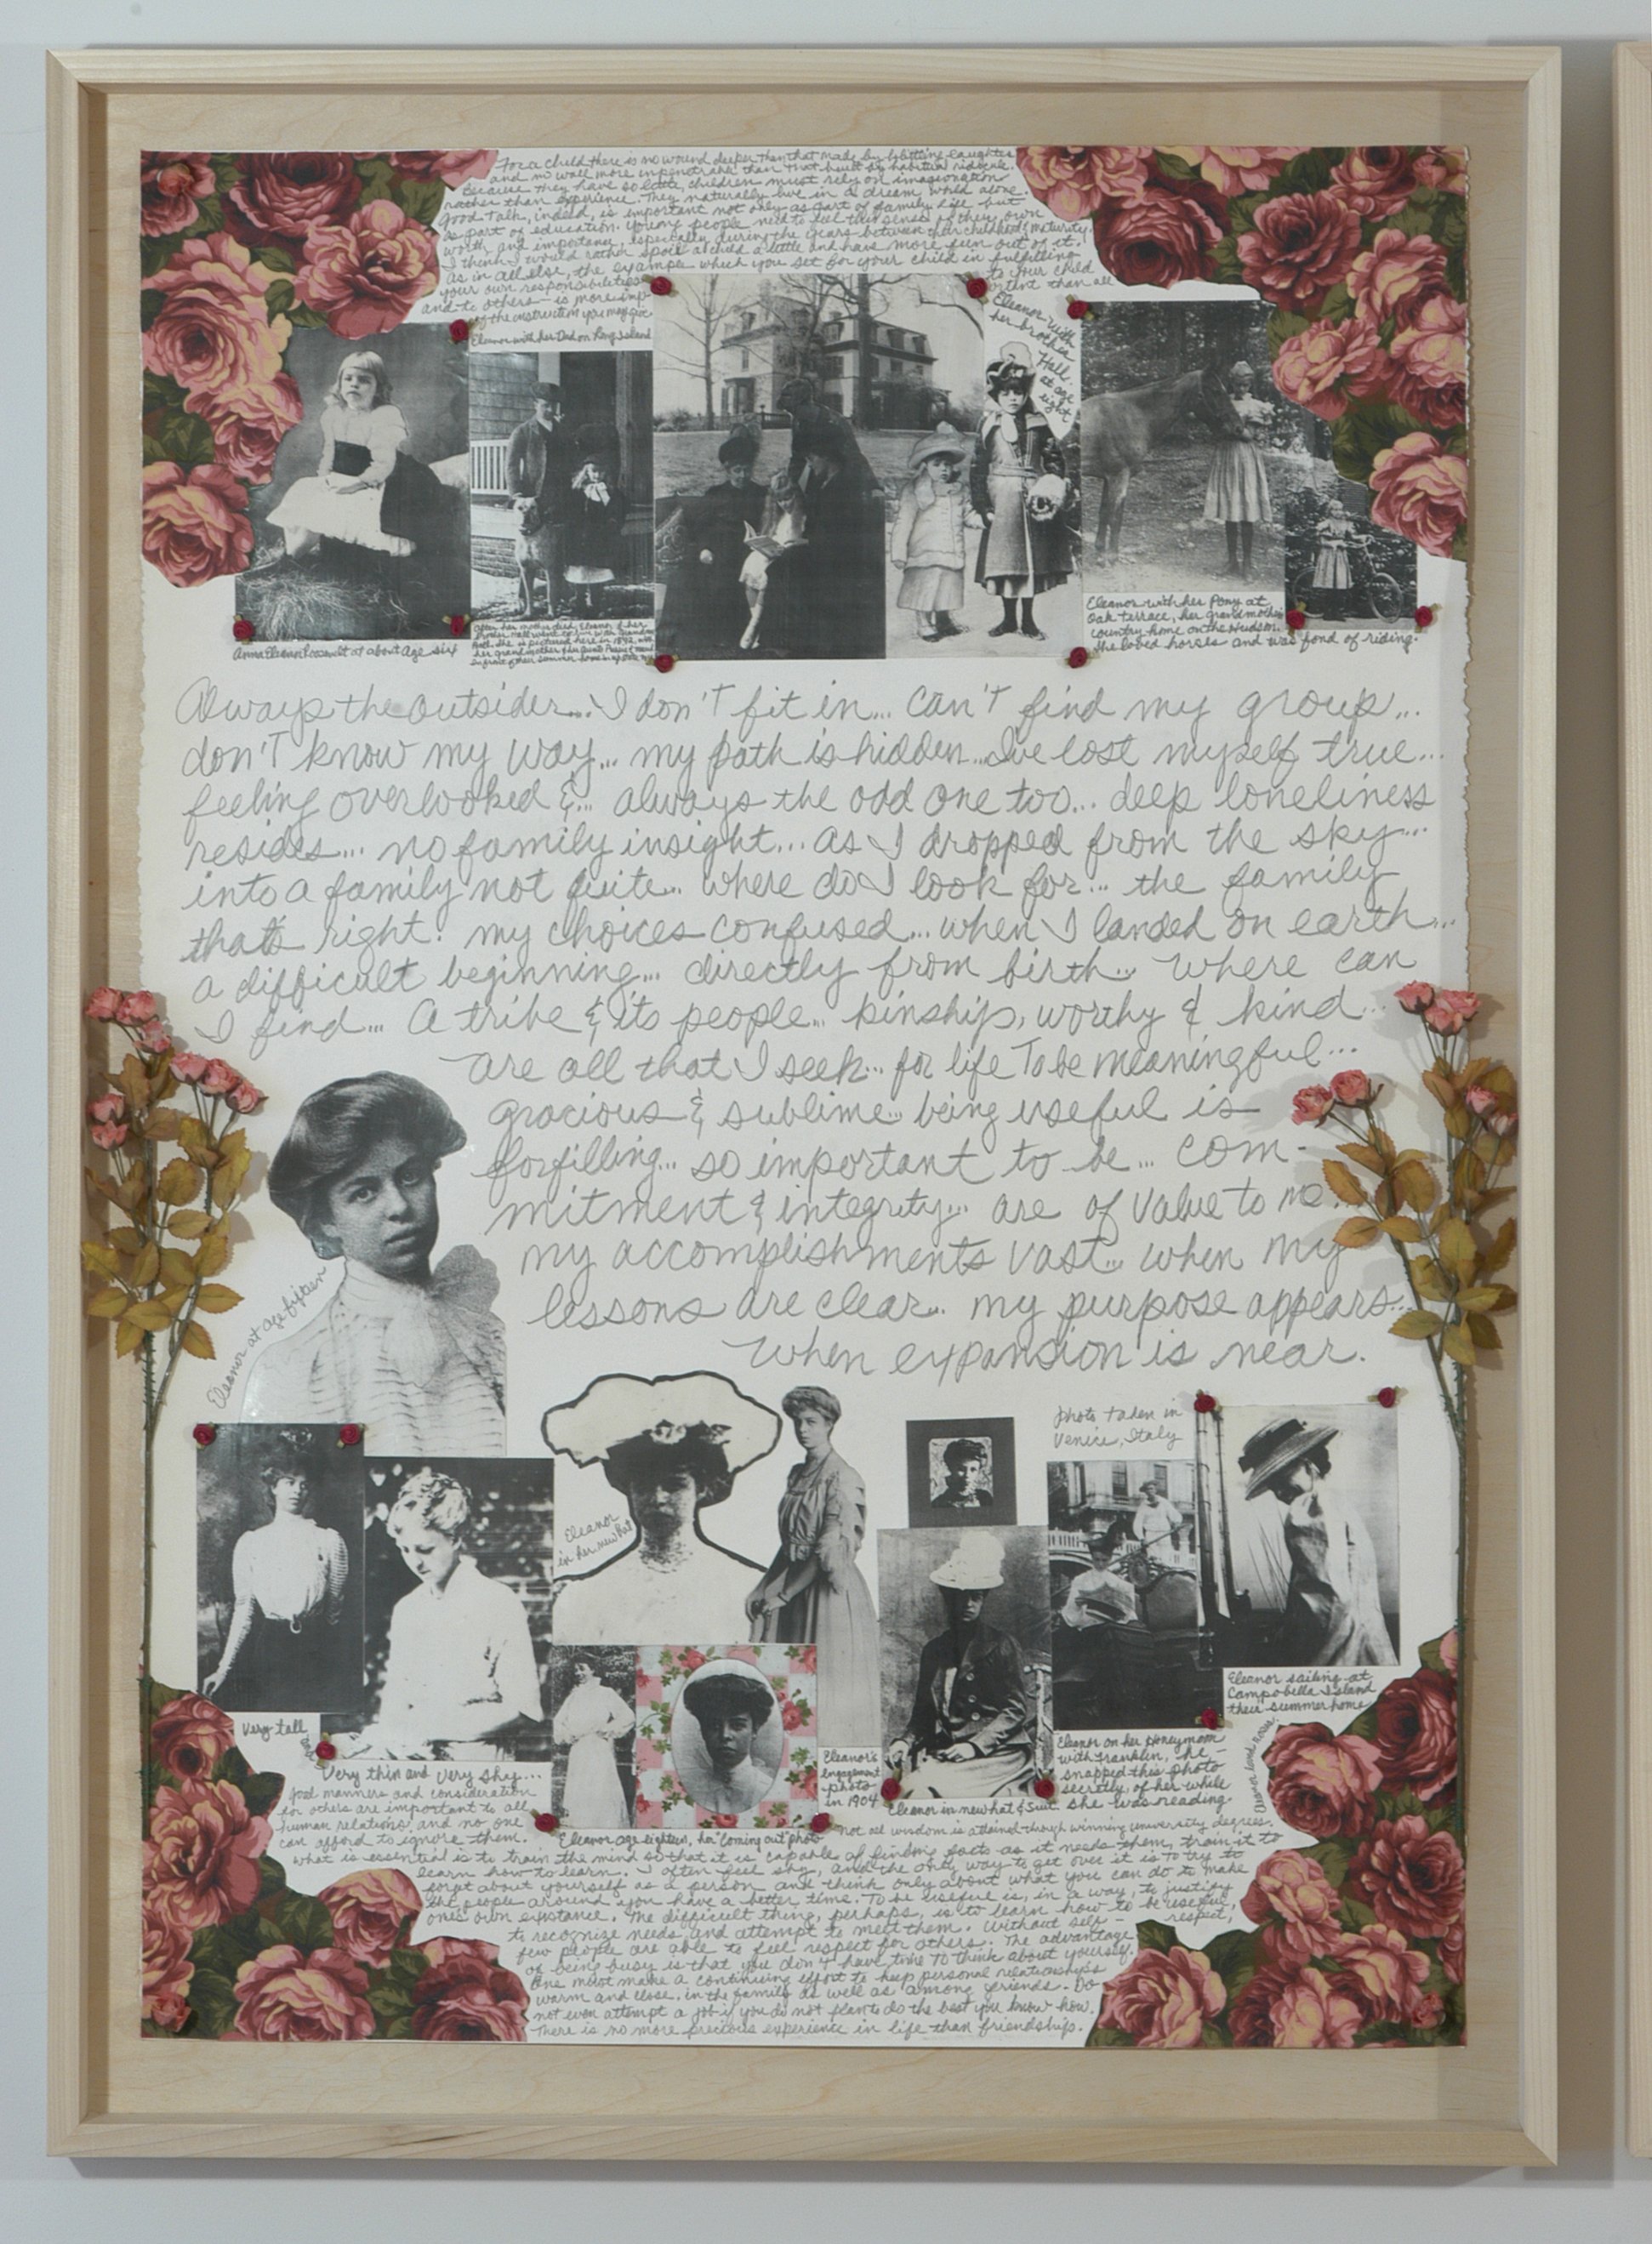 For a child there is no wound deeper than that made by belittling laughter
and no wall more impenetrable than that built by habitual ridicule.
Because they have so little, children must rely on imagination
rather than experience. They naturally live in a dream world alone.
Good talk, indeed, is important not only as part of family life but
as part of education. Young people need to feel this sense of they own
worth and importance, especially during the years between their childhood & maturity.
I think I would rather spoil a child a little and have more fun out of it.
As in all else, the example which you set for your child in fulfilling
your own responsibilities to your child
and to others is more important than all
the instruction you may give
Eleanor with her Dad on Long Island
Eleanor with
her brother
Hall
at age
eight
Anna Eleanor Roosevelt at about Age six
After her mother died, Eleanor & her
brother Hall went to with Grandma
Hall. She is pictured here in 1892, with
her grandmother & her Aunts
in front of their summer home
Eleanor with her Pony at
Oak terrace, her grandmothers
country home on the Hudson.
She loved horses and was fond of riding.
Always the outsider... I don't fit in... can't find my group...
don't know my way... my path is hidden... I've lost myself true...
feeling overlooked &... always the odd one too... deep loneliness
resides... no family insight... as I dropped from the sky...
into a family not quite... where do I look for... the family
that's right. my choices confused... when I landed on earth...
a difficult beginning... directly from birth... where can
I find... A tribe & its people... kinship, worthy & kind...
are all that I seek... for life To be meaningful...
gracious & sublime... being useful is
forfilling... so important to be... com-
mitment & integrity... are of value to me.
my accomplishments vast... when my
lessons are clear... my purpose appears...
when expansion is near.
Eleanor at age fifteen
Eleanor
in her new hat
photo taken in
Venice, Italy
Very tall
Very thin and very shy...
Eleanor sailing at
Campobella Island
their summer home
Eleanor's
engagement
photo
in 1904
Eleanor on her Honeymoon
with Franklin, he
snapped this photo
secretly of her while
she was reading.
Eleanor in new hat & suit
Eleanor loved roses.
Eleanor age eighteen, her "coming out" photo
good manners and consideration
for others are important to all
human relations, and no one
can afford to ignore them.
Not all wisdom is attained though winning university degrees.
what is essential is to train the mind so that it is capable of finding facts as it needs them, train it to
learn how to learn. I often feel shy, and the only way to get over it is to try to
forget about yourself as a person and think only about what you can do to make
the people around you have a better time. To be useful is, in a way, to justify
ones own existance. The difficult thing, perhaps, is to learn how to be useful,
to recognize needs and attempt to meet them. Without self-respect,
few people are able to feel respect for others. The advantage
of being busy is that you don't have time To think about yourself.
One must make a continuing effort to keep personal relationships
warm and close, in the family as well as among friends. Do
not even attempt a job if you do not plan to do the best you know how.
There is no more precious experience in life than friendship.